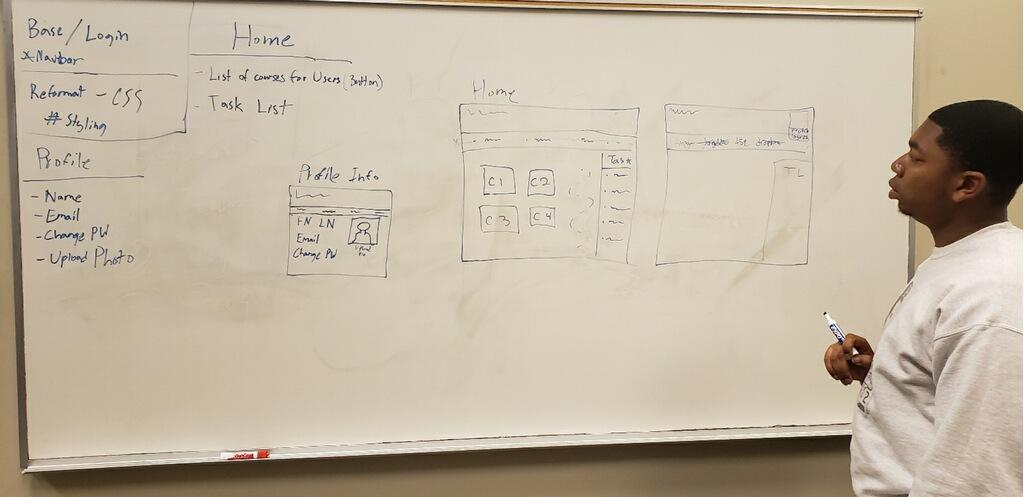 Base/Login
x-Navbar
Reformat - CSS
# Styling
Profile
- Name
- Email
- Change PW
- Upload Photo
Home
- List of courses for Users (Button)
- Task List
Profile Info
FN LN
Email
Change PW
Upload
Home
Task
C1 C2
C3 C4
TL